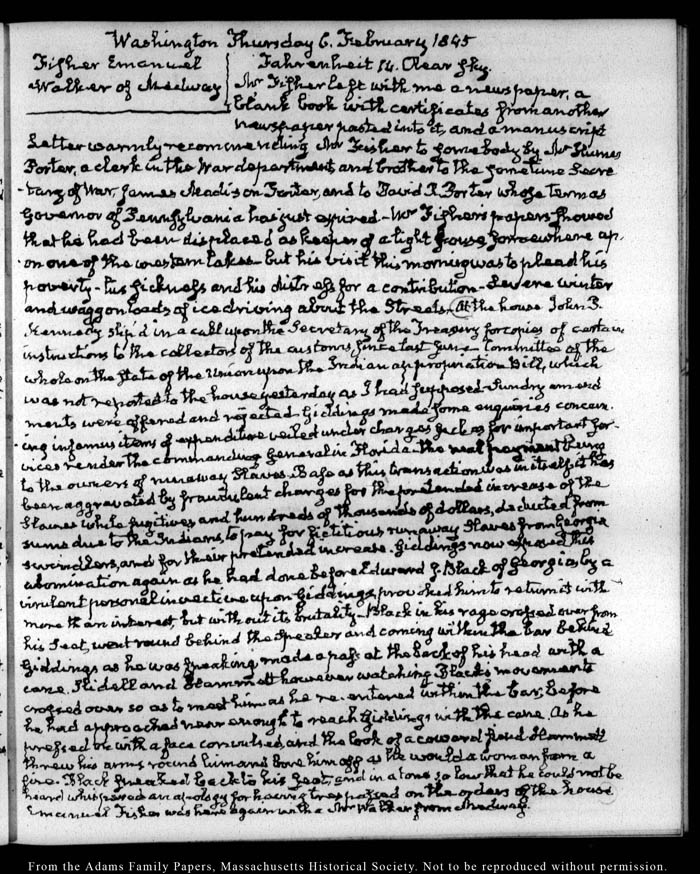 Washington Thursday 6. February 1845
Fisher Emanuel
Walker of Medway
Fahrenheit 14. Clear sky.
Mr Fisher left with me a newspaper, a
blank book with certificates from another
newspaper pasted into it, and a manuscript
Letter warmly recommending Mr Fisher to somebody by Mr Humes
Porter, a clerk in the War department, and brother to the sometime Secre
-tary of War, James Madison Porter, and to David R Porter whose term as
Governor of Pennsylvania has just expired - Mr Fishers papers showed
that he had been displaced as keeper of a light house somewhere up-
on one of the western lakes - but his visit this morning was to plead his
poverty - his sickness and his distress for a contribution - Severe winter
and waggon loads of ice driving about the Streets. At the house John P.
Kennedy slip'd in a call upon the Secretary of the Treasury for copies of certain
instructions to the collectors of the customs, since last June - Committee of the
whole on the state of the Union upon the Indian appropriation Bill, which
was not reported to the house yesterday as I had supposed - Sundry amend
ments were offered and rejected - Giddings made some enquiries concern-
ing infamous items of expenditure veiled under charges such as for important ser-
vices render the commanding General in Florida - the real payment being
to the owners of runaway Slaves - Base as this transaction was in itself it has
been aggravated by fraudulent charges for the pretended increase of the
Slaves while fugitives and hundreds of thousands of dollars, deducted from
sums due to the Indians, to pay for fictitious runaway Slaves from Georgia
swindlers, and for their pretended increase. Giddings now exposed this
abomination again as he had done before Edward J. Black of Georgia by a
virulent personal invective upon Giddings, provoked him to return it with
more than interest, but without its brutality - Black in his rage crossed over from
his Seat, went round behind the Speaker and coming within the bar behind
Giddings as he was speaking made a pass at the back of his head with a
cane. Slidell and Hammett however watching Black's movements
crossed over so as to meet him as he re-entered within the bar, before
he had approached near enough to reach Giddings with the cane. As he
pressed on with a face convulsed, and the look of a coward fiend Hammett
threw his arms round him and bore him off as he would a woman from a
fire. Black sneaked back to his Seat, and in a tone so low that he could not be
heard whispered an apology for having trespassed on the orders of the house.
Emanuel Fisher was here again with a Mr Walker from Medway.
From the Adams Family Papers, Massachusetts Historical Society. Not to be reproduced without permission.